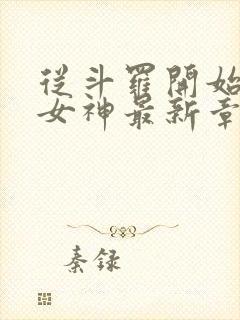 從斗羅開始
女神最新章
秦錄